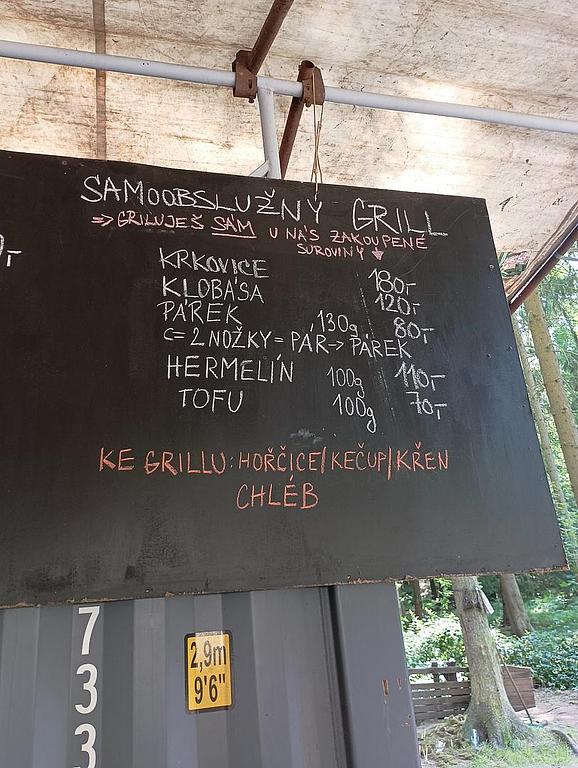 SAMOOBSLUŽNÝ GRILL
⇒ GRILUJEŠ SÁM U NÁS ZAKOUPENÉ
SUROVINY
KRKOVICE 180,-
KLOBÁSA 120,-
PÁREK 130g 80,-
C= 2 NOŽKY = PÁR → PÁREK
HERMELÍN 100g 110,-
TOFU 100g 70,-
KE GRILLU: HOŘČICE/KEČUP/KŘEN
CHLÉB
733
2,9m
9'6"